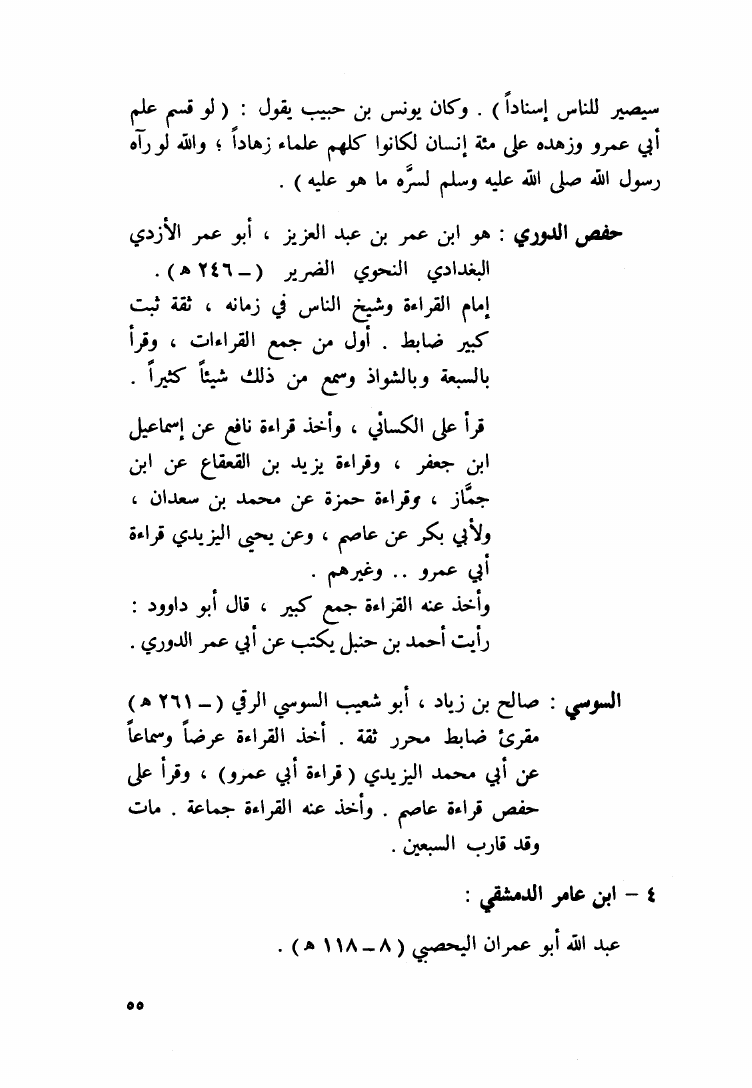 سيصير للناس إسناداً ) . وكان يونس بن حبيب يقول : ( لو قسم علم
أبي عمرو وزهده على مئة إنسان لكانوا كلهم علماء زهاداً ؛ والله لو رآه
رسول الله صلى الله عليه وسلم لسرَّه ما هو عليه ) .
حفص الدوري : هو ابن عمر بن عبد العزيز ، أبو عمر الأزدي
البغدادي النحوي الضرير ( – ٢٤٦ هـ ) .
إمام القراءة وشيخ الناس في زمانه ، ثقة ثبت
كبير ضابط . أول من جمع القراءات ، وقرأ
بالسبعة وبالشواذ وسمع من ذلك شيئاً كثيراً .
قرأ على الكسائي ، وأخذ قراءة نافع عن إسماعيل
ابن جعفر ، وقراءة يزيد بن القعقاع عن ابن
جمَّاز ، وقراءة حمزة عن محمد بن سعدان ،
ولأبي بكر عن عاصم ، وعن يحيى اليزيدي قراءة
أبي عمرو .. وغيرهم .
وأخذ عنه القراءة جمع كبير ، قال أبو داوود :
رأيت أحمد بن حنبل يكتب عن أبي عمر الدوري .
السوسي : صالح بن زياد ، أبو شعيب السوسي الرقي ( – ٢٦١ هـ )
مقرئ ضابط محرر ثقة . أخذ القراءة عرضاً وسماعاً
عن أبي محمد اليزيدي ( قراءة أبي عمرو ) ، وقرأ على
حفص قراءة عاصم . وأخذ عنه القراءة جماعة . مات
وقد قارب السبعين .
٤ – ابن عامر الدمشقي :
عبد الله أبو عمران اليحصبي ( ٨ – ١١٨ هـ ) .
٥٥